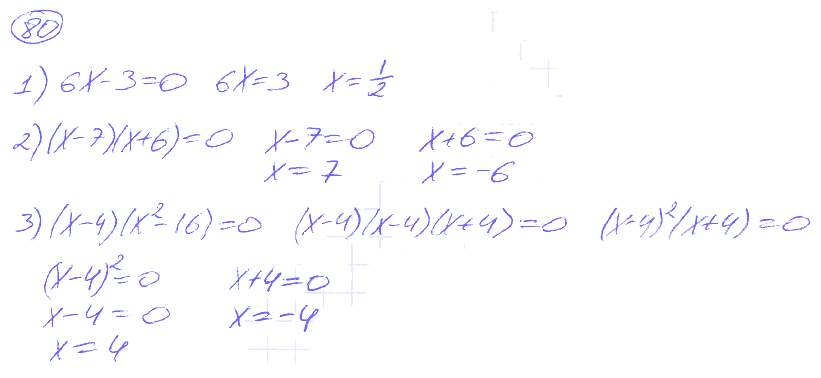 80
1) 6x-3=0 6x=3 x=1/2
2) (x-7)(x+6)=0 x-7=0 x+6=0
x=7 x=-6
3) (x-4)(x²-16)=0 (x-4)(x-4)(x+4)=0 (x-4)²(x+4)=0
(x-4)²=0 x+4=0
x-4=0 x=-4
x=4